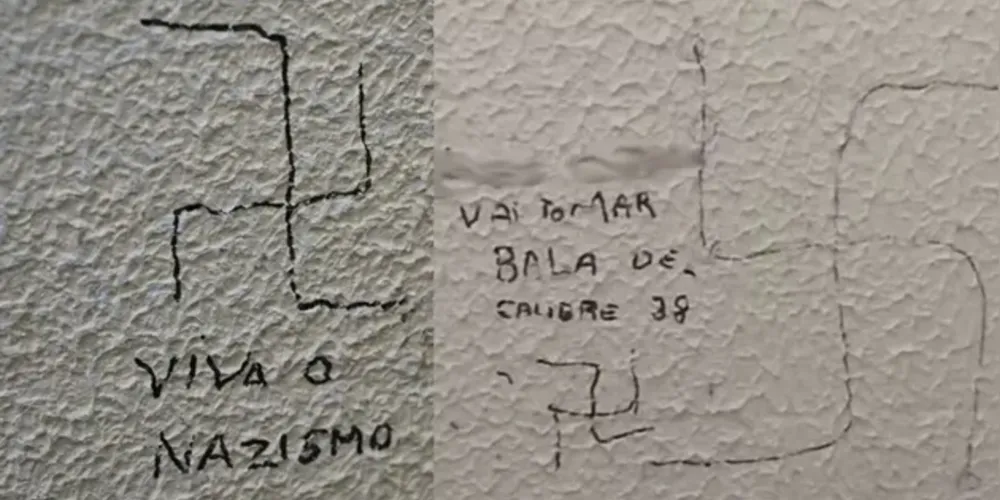 VIVA O
NAZISMO
VAi ToMAR
BALA DE
CALIBRE 38